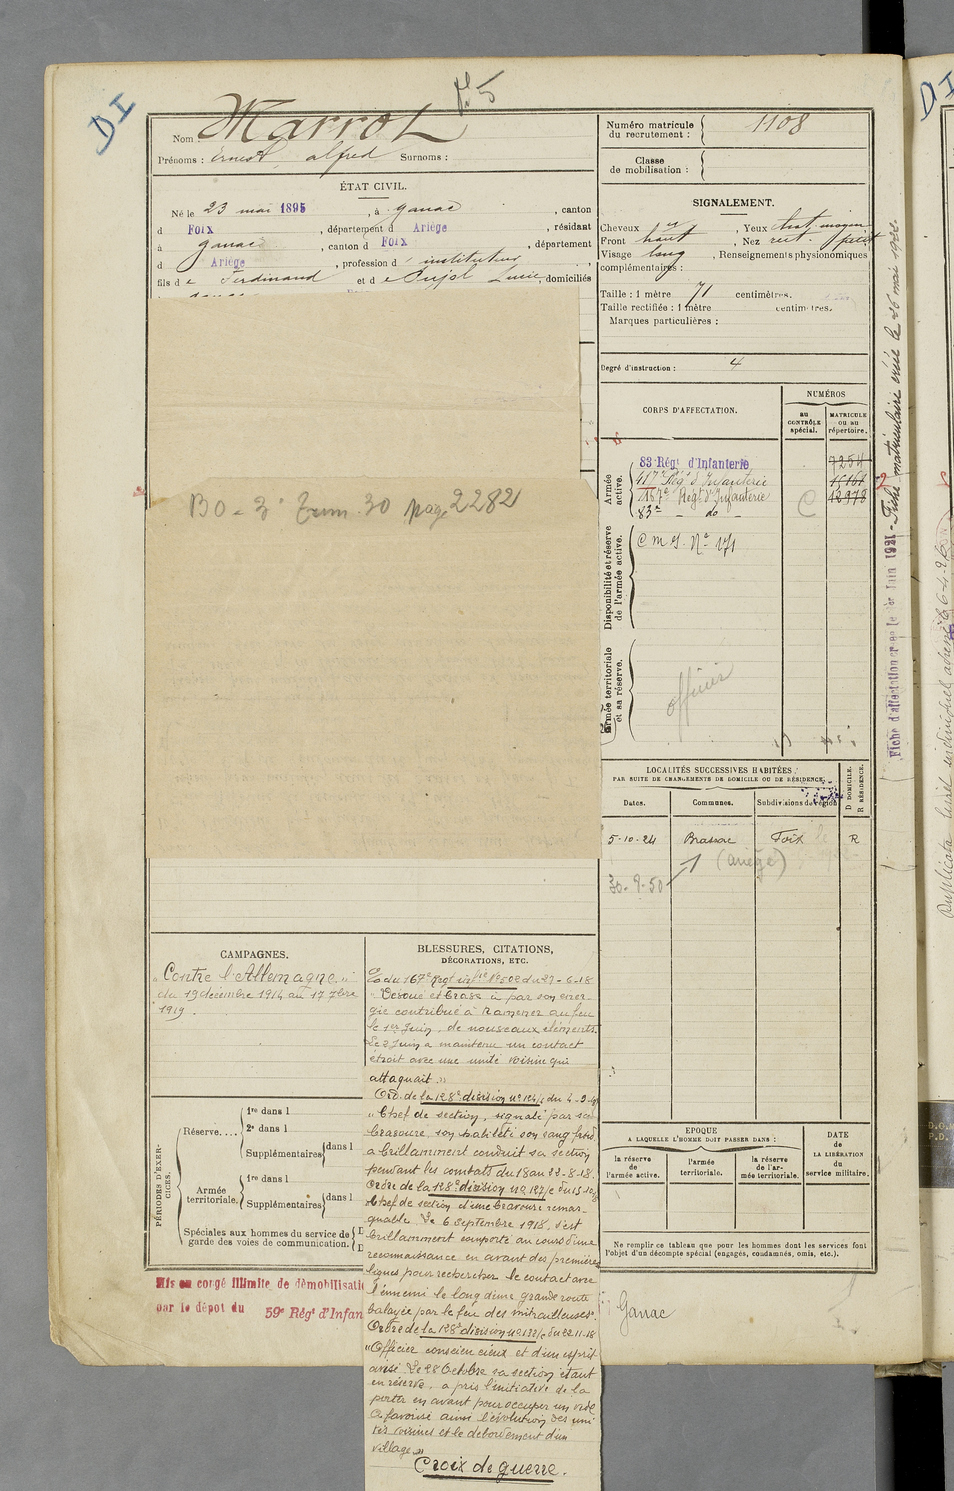 DI
fl 5
Nom : Marrot
Prénoms : Ernest, alfred Surnoms :
ÉTAT CIVIL.
Né le 23 mai 1895, à ganac, canton
d Foix, département d Ariège, résidant
à ganac, canton d Foix, département
d Ariège, profession d' instituteur
fils de Ferdinand et de Pujol Lucie, domiciliés
BO - 3e Trim. 30 page 2282
CAMPAGNES.
"Contre l'Allemagne"
du 19 décembre 1914 au 17 7bre
1919.
PÉRIODES D'EXERCICES.
Réserve....
1re dans l
2e dans l
Supplémentaires dans l
Armée territoriale.
1re dans l
Supplémentaires dans l
Spéciales aux hommes du service de
garde des voies de communication.
Mis en congé illimité de démobilisati
par le dépôt du 59e Régt d'Infan
BLESSURES, CITATIONS,
DÉCORATIONS, ETC.
du 167e Regt inf n° 502 du 27-6-18
"Dévoué et brave a par son éner-
gie contribué à ramener au feu
le 1er Juin, de nouveaux éléments
Le 2 Juin a maintenu un contact
étroit avec une unité voisine qui
attaquait."
Ord. de la 128e division n° 124/ du 4-9-
"Chef de section, signalé par sa
bravoure, son habileté son sang froid
a brillamment conduit sa section
pendant les combats du 18 au 22-8-18.
Ordre de la 128e division n° 127/c du 15
Chef de section d'une bravoure remar-
quable. Le 6 septembre 1918, s'est
brillamment comporté au cours d'une
reconnaissance en avant des premières
lignes pour rechercher le contact avec
l'ennemi le long d'une grande route
balayée par le feu des mitrailleuses".
Ordre de la 128e division n° 132/c du 22-11-18
"Officier consciencieux et d'un esprit
avisé Le 28 Octobre sa section étant
en réserve, a pris l'initiative de la
porter en avant pour occuper un vide
a favorisé ainsi l'évolution des uni
tés voisines et le débordement d'un
village"
Croix de guerre.
Numéro matricule
du recrutement : 1108
Classe
de mobilisation :
SIGNALEMENT.
Cheveux, Yeux chat moyen
Front haut, Nez rect. petit
Visage long, Renseignements physionomiques
complémentaires :
Taille : 1 mètre 71 centimètres.
Taille rectifiée : 1 mètre centimètres.
Marques particulières :
Degré d'instruction : 4
CORPS D'AFFECTATION.
NUMÉROS
au
CONTRÔLE
spécial.
MATRICULE
ou au
répertoire.
Armée
active.
83e Régt d'Infanterie 7254
417e Régt d'Infanterie 15161
167e Régt d'Infanterie C 12978
83e - do -
Disponibilité et réserve
de l'armée active.
C m I. N° 171
Armée territoriale
et sa réserve.
officier
LOCALITÉS SUCCESSIVES HABITÉES
PAR SUITE DE CHANGEMENTS DE DOMICILE OU DE RÉSIDENCE.
Dates.
Communes.
Subdivisions de région
D DOMICILE.
R RÉSIDENCE.
5-10-24 Brassac Foix R
(ariège)
30-9-50
EPOQUE
A LAQUELLE L'HOMME DOIT PASSER DANS :
la réserve
de
l'armée active.
l'armée
territoriale.
la réserve
de l'ar-
mée territoriale.
DATE
de
LA LIBÉRATION
du
service militaire.
Ne remplir ce tableau que pour les hommes dont les services font
l'objet d'un décompte spécial (engagés, condamnés, omis, etc.).
Ganac
Fiche d'affectation créée le 1er Juin 1921 - Fiche matriculaire créée le 26 mai 1922
DI